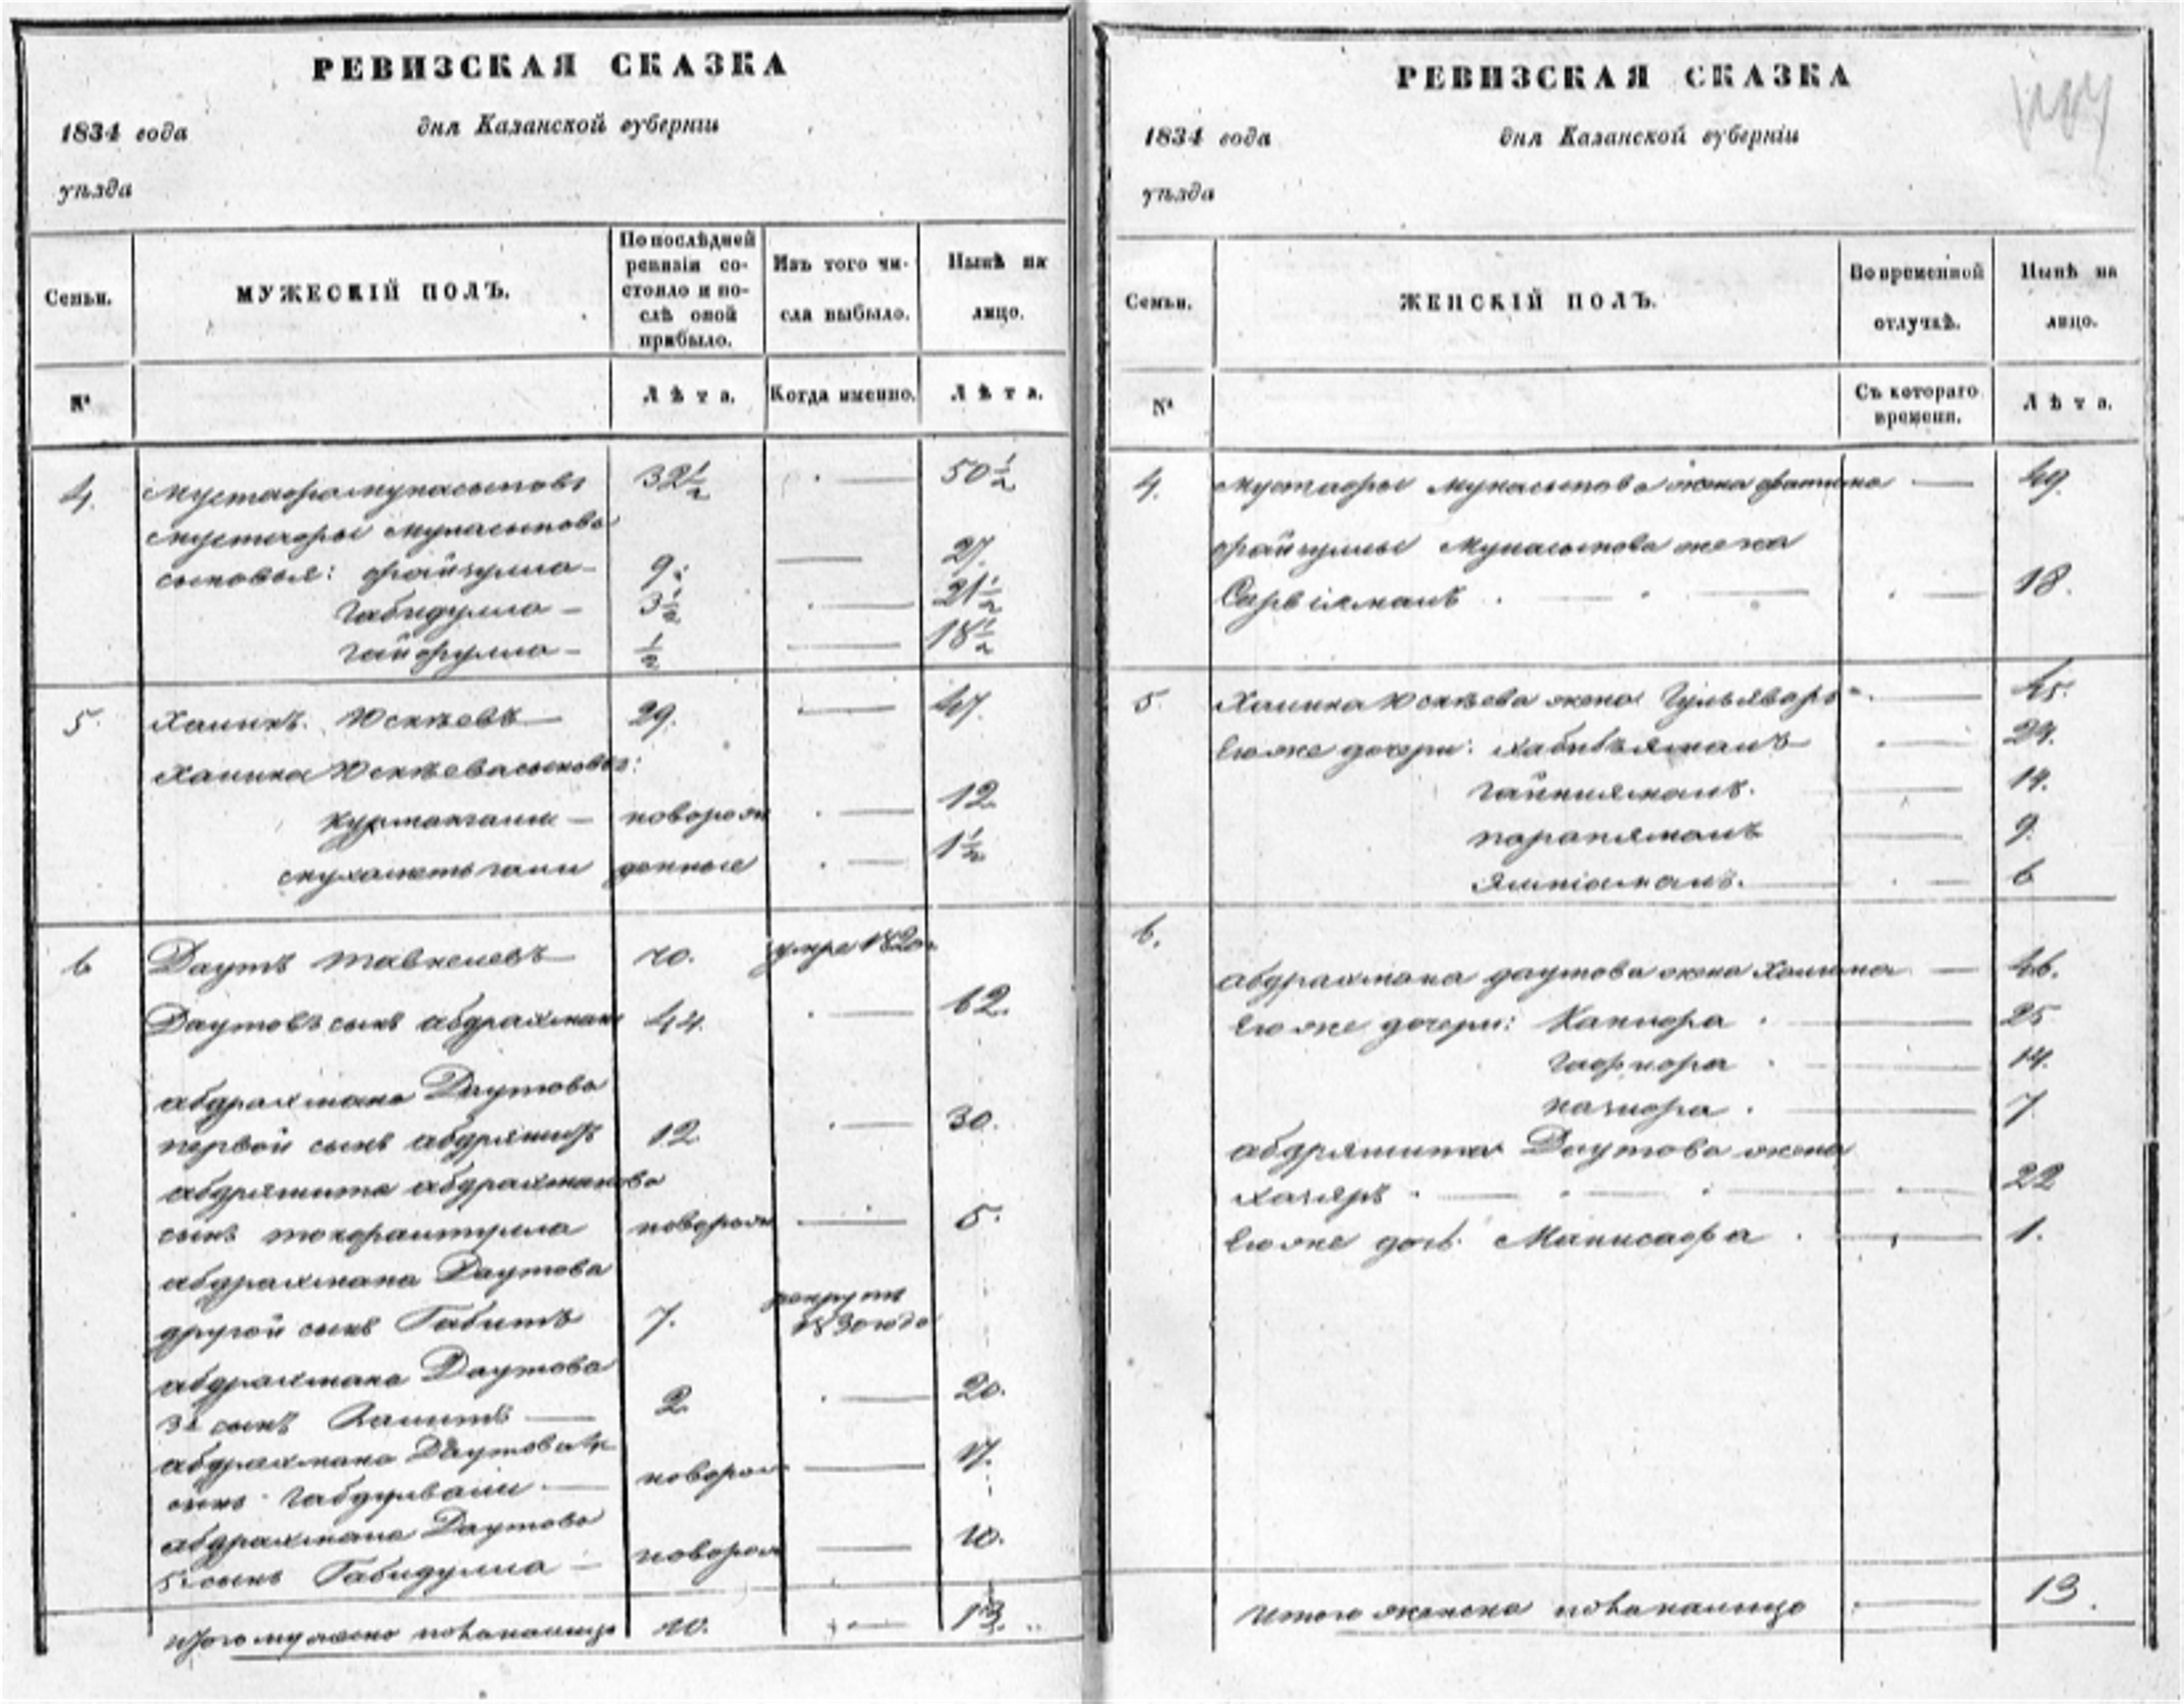 РЕВИЗСКАЯ СКАЗКА
1834 года дня Казанской губернiи
уѣзда
Семьи.
МУЖЕСКIЙ ПОЛЪ.
По послѣдней
ревизiи со-
стояло и по-
слѣ оной
прибыло.
Изъ того чи-
сла выбыло.
Нынѣ на
лицо.
№
Лѣта.
Когда именно.
Лѣта.
4. Мустафа Мунасыповъ 32½ 50½
Мустафы Мунасыпова
сыновья: Файзулла 9. 27.
Габидулла 3½ 21½
Гайфулла ½ 18½
5. Халикъ Юскѣевъ 29. 47.
Халика Юскѣева сыновья:
Курмангали новорож 12.
Мухаметьгали денные 1½
6 Даутъ Тавкелевъ 70. умре 1820
Даутовъ сынъ абдрахманъ 44. 62.
абдрахмана Даутова
первой сынъ 12 30.
абдрахманова
сынъ новорож 5.
абдрахмана Даутова
другой сынъ Габитъ 7. рекрутъ
1830 года
абдрахмана Даутова
3й сынъ 2. 20.
абдрахмана Даутова 4й
сынъ новорож 17.
абдрахмана Даутова
5й сынъ Габидулла новорож 10.
Итого мужеска пола налицо 10. 13.
РЕВИЗСКАЯ СКАЗКА
1834 года дня Казанской губернiи
уѣзда
Семьи.
ЖЕНСКIЙ ПОЛЪ.
Во временной
отлучкѣ.
Нынѣ на
лицо.
№
Съ котораго
времени.
Лѣта.
4. Мустафы Мунасыпова жена Фатима 49.
Файзуллы Мунасыпова жена
18.
5 Халика Юскѣева жена Гульяваръ 45.
Его же дочери: Хабибъямалъ 24.
14.
9.
6
6.
абдрахмана даутова жена Халима 46.
Его же дочери: 25
14.
7
Даутова жена
22
Его же дочь 1.
Итого женска пола налицо 13.